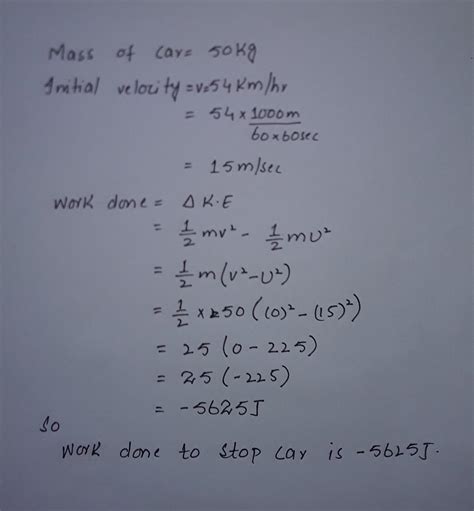 Mass of car= 50Kg
Initial velocity =v=54 Km/hr
= 54 × 1000m / 60×60sec
= 15m/sec
Work done = Δ K.E
= 1/2 mv² - 1/2 mu²
= 1/2 m (v²-u²)
= 1/2 × 50 ((0)² - (15)²)
= 25 (0 - 225)
= 25 (-225)
= -5625J
So
Work done to stop car is -5625J.